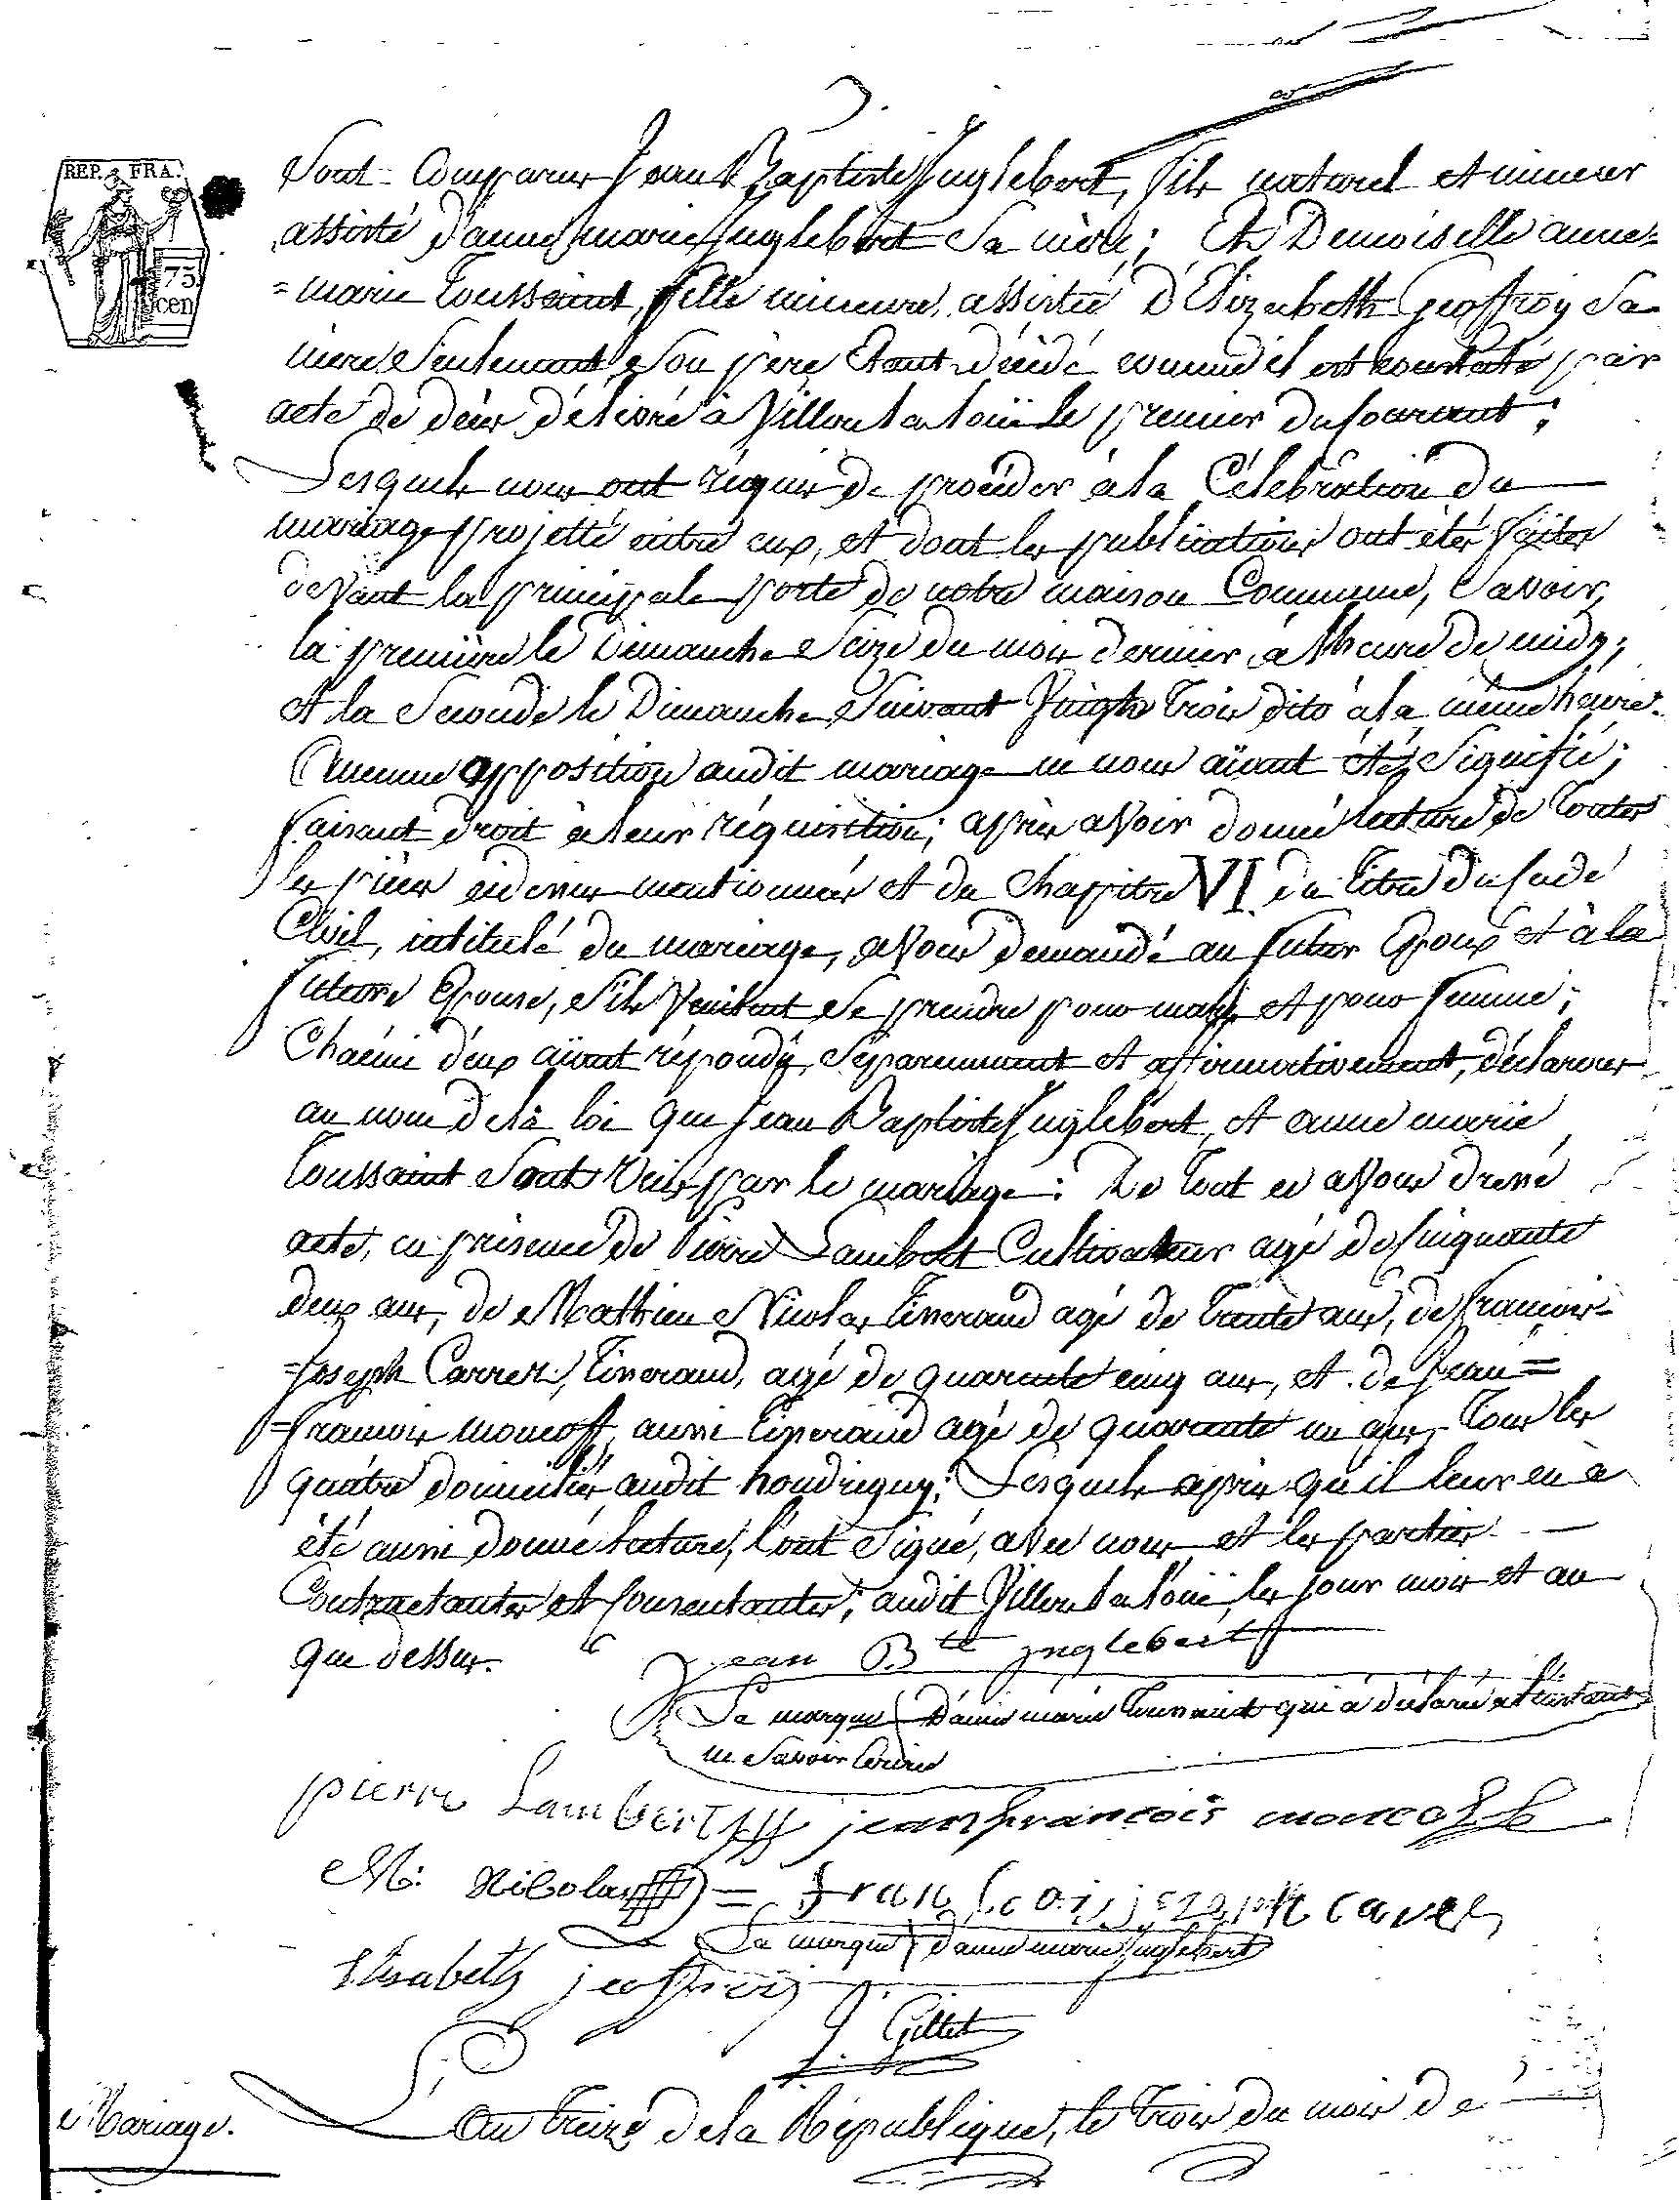 3.
REP. FRA.
75
cen
Sont Comparus Jean Baptiste Inglebert, fils naturel et mineur
assisté d'anne marie Inglebert sa mère; Et Demoiselle anne=
=marie Toussaint, fille mineure, assistée D'Elizabeth Geoffroy sa
mère seulement son père Etant décédé comme il est constaté par
acte de décès délivré à Villers la loüe le premier du Courant;
Lesquels nous ont réquis de procéder à la Célébration du
mariage projetté entre eux, et dont les publications ont étés faites
devant la principale porte de notre maison Commune, Savoir,
la première le Dimanche Seize du mois dernier, à l'heure de midy;
et la Seconde le Dimanche Suivant Vingt Trois dito à la même heure.
Aucune opposition audit mariage ne nous aïant étés Signifié;
faisant droit à leur réquisition; après avoir donné lecture de Toutes
les pièces cidessus mentionnées et du Chapitre VI du Titre du Code
Civil, intitulé du mariage, avons demandé au futur Epoux et à la
future Epouse, s'ils Veulent se prendre pour mary et pour femme;
Chacun d'eux aïant répondu, Séparemment et affirmativement, déclarons
au nom de la loi que Jean Baptiste Inglebert, et anne marie
Toussaint Sont Unis par le mariage: De Tout ce avons dressé
acte, en présence de Pierre Lambert Cultivateur agé de Cinquante
deux ans, de Mathieu Nicolas Tisserand agé de Trente ans, de françois=
=Joseph Carrez, Tisserand, agé de quarante cinq ans, et de Jean=
=françois moncoff, aussi Tisserand agé de quarante un ans, Tous les
quatre domiciliés audit houdrigny; Lesquels après qu'il leur en a
été aussi donné lecture, l'ont Signé, avec nous et les parties
Contractantes et Consentantes; audit Villers la loüe, les jour mois et an
que dessus.
jean B.te jnglebert
La marque D'anne marie Toussaint qui a déclaré à l'instant
ne Savoir Ecrire
pierre Lambert jean françois moncoff
M: Nicolas = françois jozeph carez
La marque d'anne marie Inglebert
Elisabeth jeoffroy
J. Gillet
Mariage.
L'An Treize de la République, le Trois du mois de